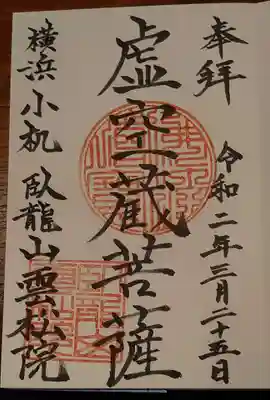 奉拝
令和二年三月二十五日
虚空蔵菩薩
横浜小机臥龍山雲松院